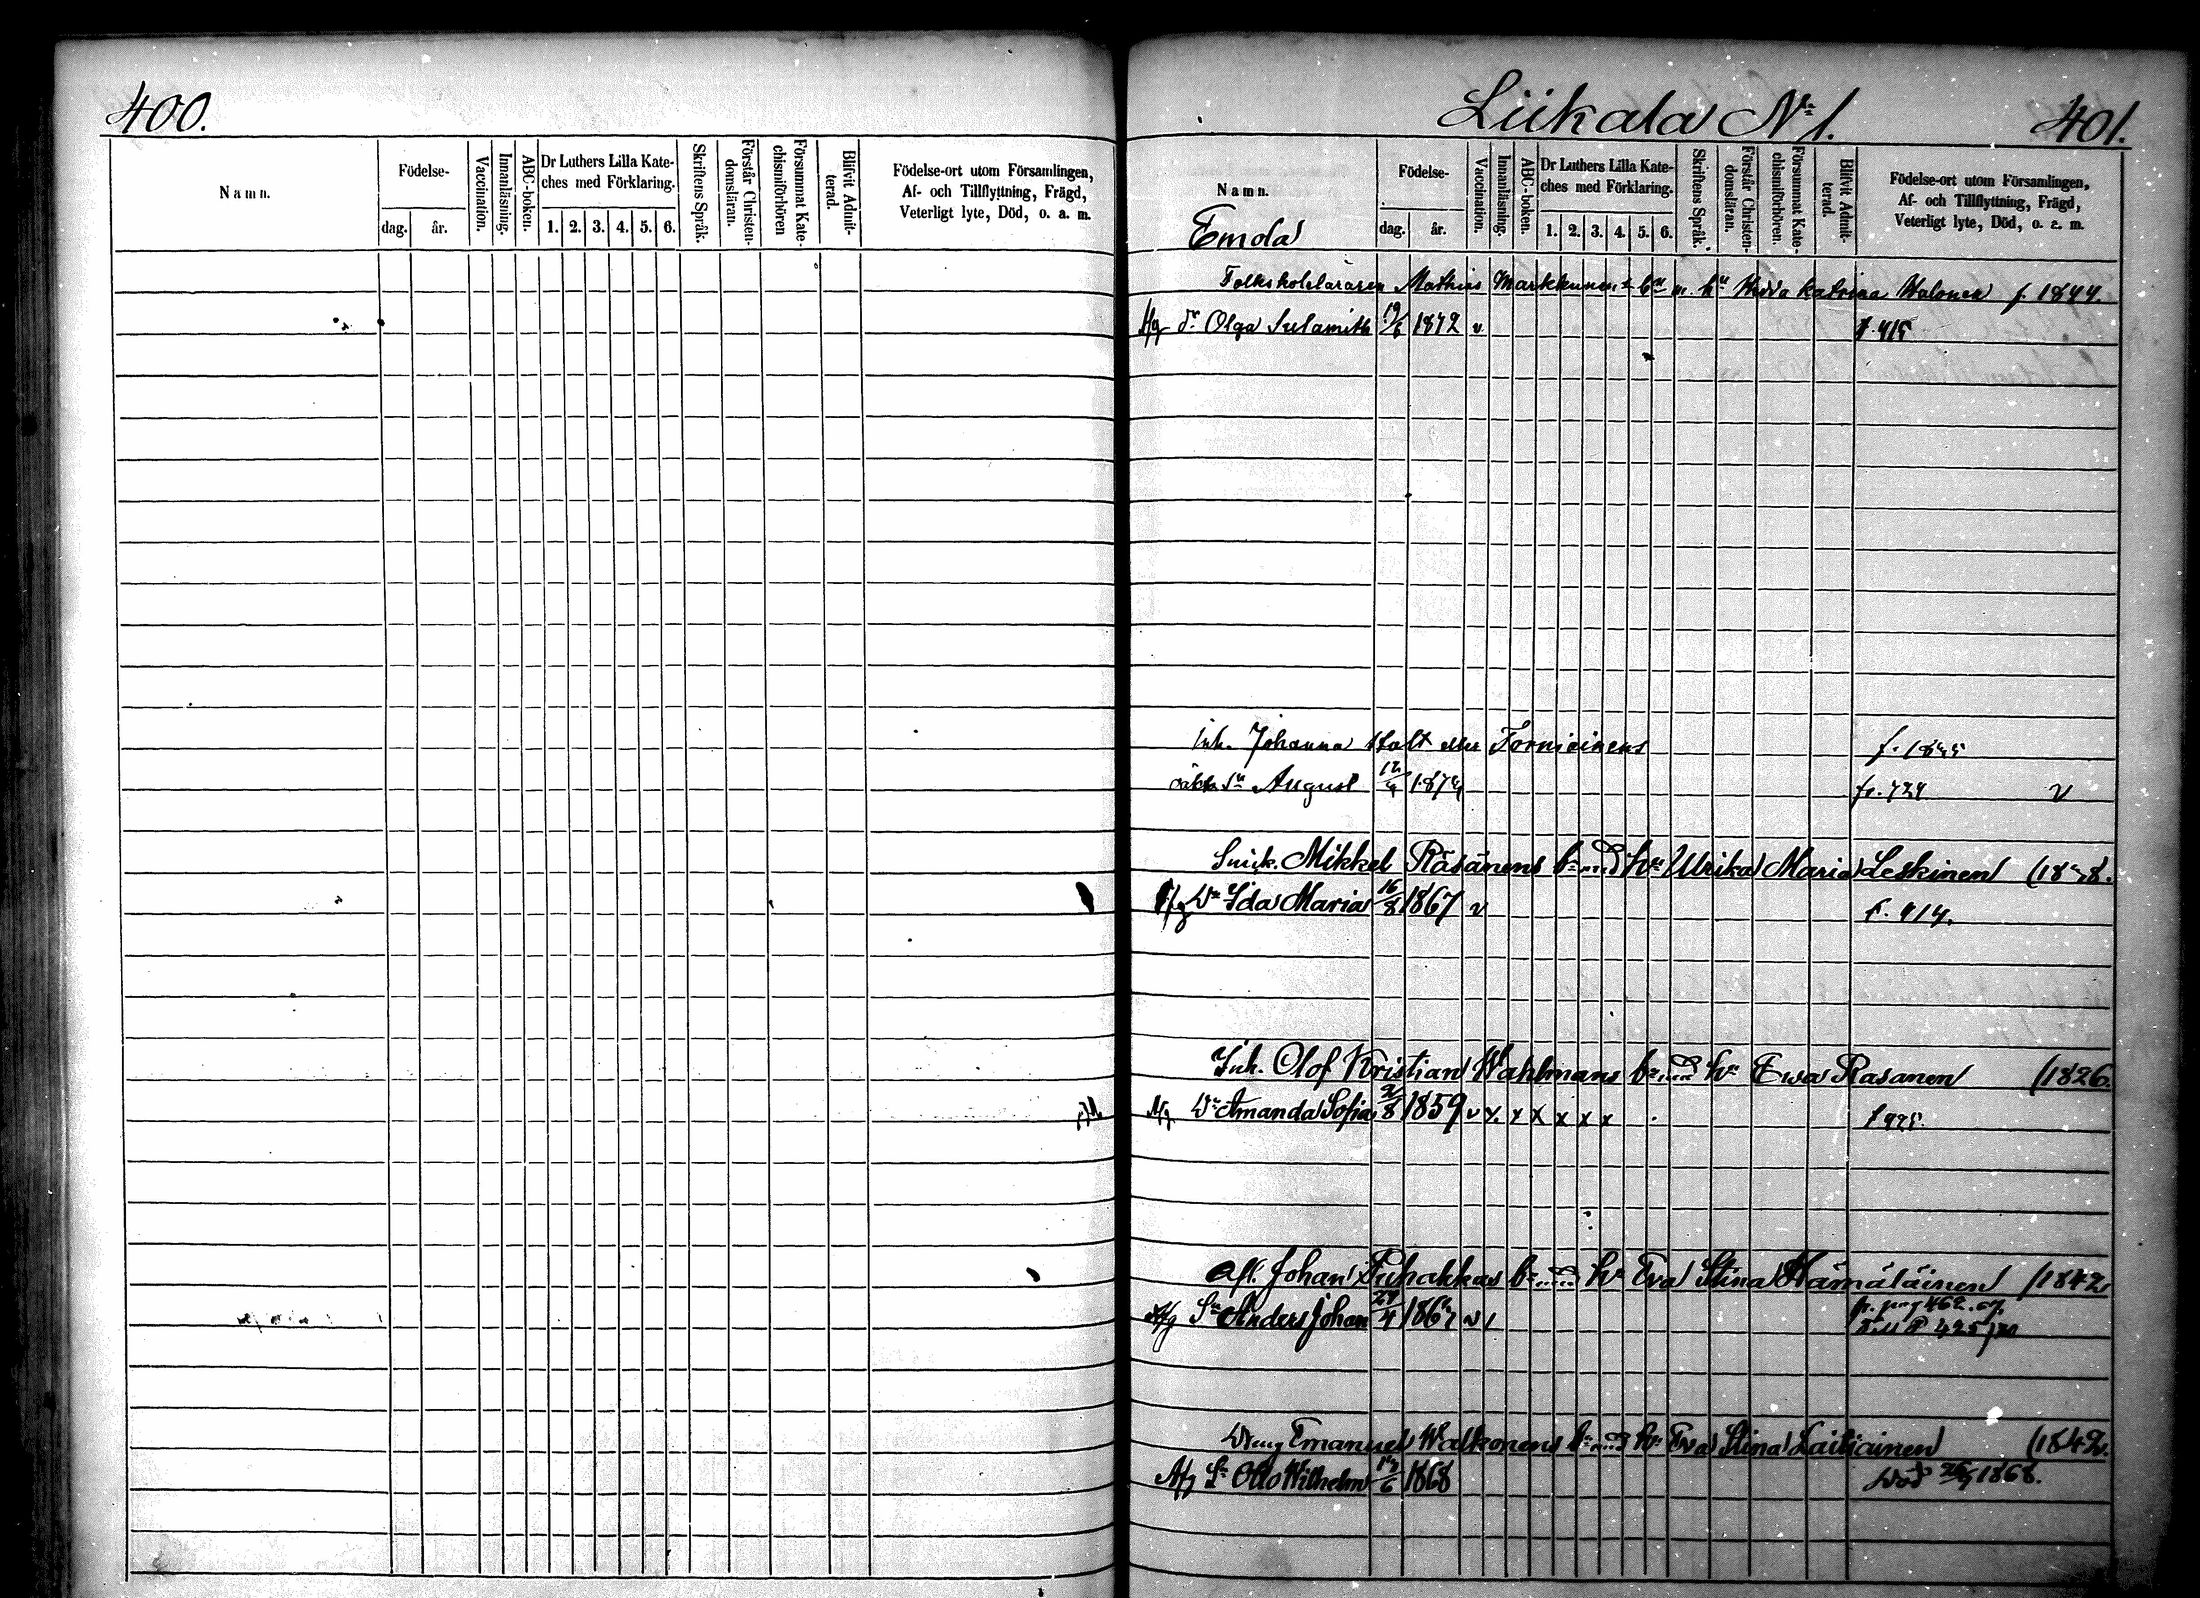 400.
Namn.
Födelse-
dag. år.
Vaccination.
Innanläsning.
ABC-boken.
Dr Luthers Lilla Kate-
ches med Förklaring.
1. 2. 3. 4. 5. 6.
Skriftens Språk.
Förstår Christen-
domsläran.
Försummat Kate-
chismiförhören
Blifvit Admit-
terad.
Födelse-ort utom Församlingen,
Af- och Tillflyttning, Frägd,
Veterligt lyte, Död, o. a. m.
Liikala No 1.
401.
Namn.
Emola
Födelse-
dag. år.
Vaccination.
Innanläsning.
ABC-boken.
Dr Luthers Lilla Kate-
ches med Förklaring.
1. 2. 3. 4. 5. 6.
Skriftens Språk.
Förstår Christen-
domsläran.
Försummat Kate-
chismiförhören.
Blifvit Admit-
terad.
Födelse-ort utom Församlingen,
Af- och Tillflyttning, Frägd,
Veterligt lyte, Död, o. a. m.
Folkskoleläraren Mathias Markkunen bn m. hu Katrina f. 1844.
Afg dr Olga Sulamith 19/6 1872 v f. 415
Inh. Johanna Stolt eller Tornieinens f.
oäkta Sn August 12/4 1874 fr. 724 v
Snick. Mikkel Räsänens bn med hu Ulrika Maria Leskinen
Afg Dr Ida Maria 16/8 1867 v f. 414.
Inh. Olof Kristian Wahlmans bn med hu Ewa Räsänen (1826.
Afg. Dr Amanda Sofia 2/8 1859 v x x x x x x f 425.
Afl. Johan Puhakkas bn med hu Eva Stina Hämäläinen (1842
Afg Sn Anders Johan 24/4 1867 v 1 fr. pag 462. og.
425
Dräng Emanuel Walkonens bn med hu Eva Stina Laitiainen (1842.
Afg Sn Otto Wilhelm 1868 död 1868.